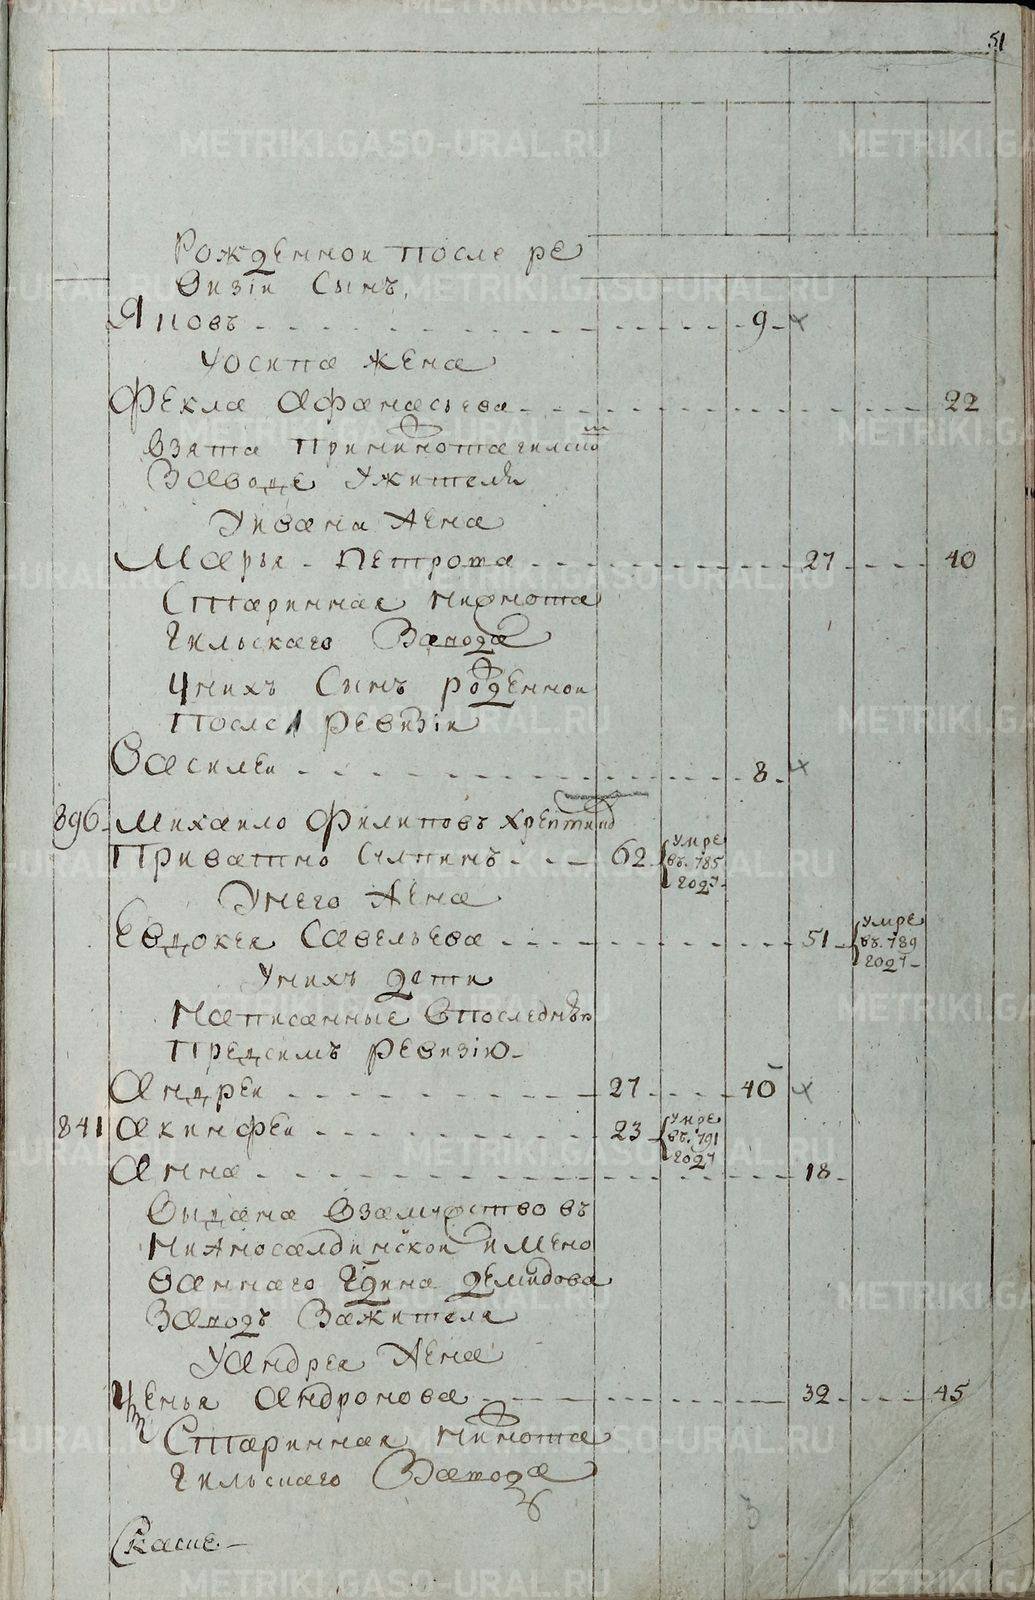 51
Рожденной после ре
визіи Сынъ,
Яковъ 9
Уосипа жена
Фекла Афанасьева 22
взята при нижнотагилском
Заводе у жителя
У ивана жена
Марья Петрова 27 40
Старинная нижнота
гильскаго Завода
У нихъ Сынъ рожденной
после ревизіи
Василеи 8
896 Михаило Филиповъ
62 умре въ 785 году
У него жена
Евдокея Савельева 51 умре въ 789 году
У нихъ дети
Написанные в последнюю
пред симъ ревизію
Андреи 27 40
841 Акинфеи 23 умре въ 791 году
Анна 18
Выдана взамужство въ
Нижносалдинской имено
ваннаго Гдина демидова
Заводъ За жителя
У Андрея жена
Андронова 32 45
Старинная нижнота
гильскаго Завода
METRIKI.GASO-URAL.RU